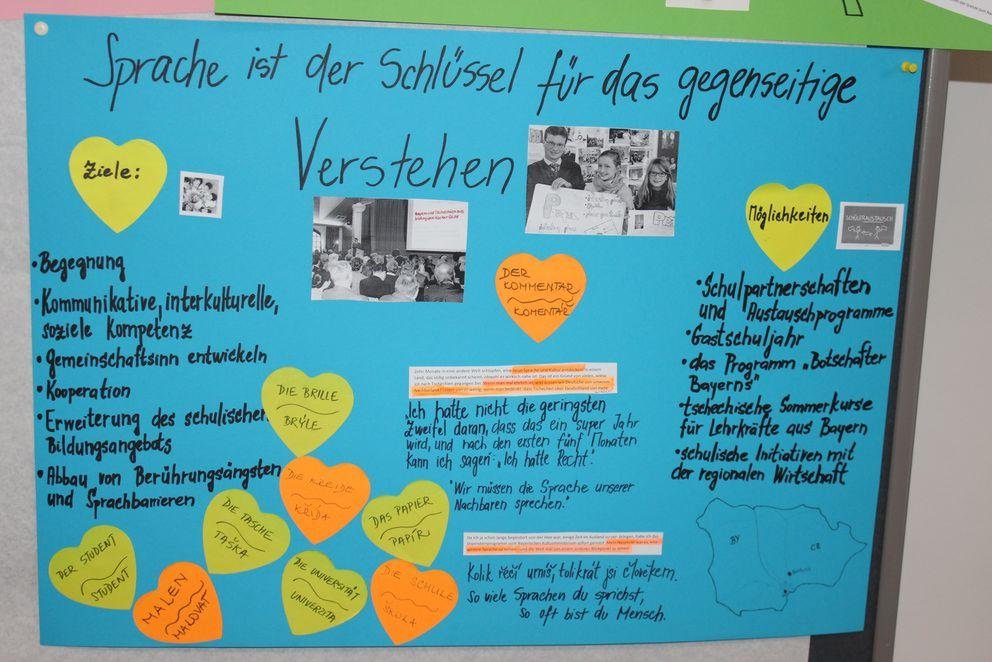 Sprache ist der Schlüssel für das gegenseitige
Verstehen
Ziele:
• Begegnung
• Kommunikative, interkulturelle,
soziele Kompetenz
• Gemeinschaftsinn entwickeln
• Kooperation
• Erweiterung des schulischen
Bildungsangebots
• Abbau von Berührungsängsten
und Sprachbarrieren
DER
KOMMENTAR
KOMENTÁŘ
Zehn Monate in eine andere Welt schlüpfen, eine neue Sprache und Kultur entdecken in einem
„Ich hatte nicht die geringsten
Zweifel daran, dass das ein "super Jahr
wird, und nach den ersten fünf Monaten
kann ich sagen: „Ich hatte Recht".
"Wir müssen die Sprache unserer
Nachbaren sprechen."
Kolik řečí umíš, tolikrát jsi člověkem.
So viele Sprachen du sprichst,
so oft bist du Mensch.
Möglichkeiten
SCHÜLERAUSTAUSCH
• Schulpartnerschaften
und Austauschprogramme
• Gastschuljahr
• das Programm „Botschafter
Bayerns"
• tschechische Sommerkurse
für Lehrkräfte aus Bayern
• schulische Initiativen mit
der regionalen Wirtschaft
BY
CR
DIE BRILLE
BRÝLE
DIE KREIDE
KŘÍDA
DIE TASCHE
TAŠKA
DAS PAPIER
PAPÍR
DER STUDENT
STUDENT
MALEN
MALOVAT
DIE UNIVERSITÄT
UNIVERZITA
DIE SCHULE
ŠKOLA